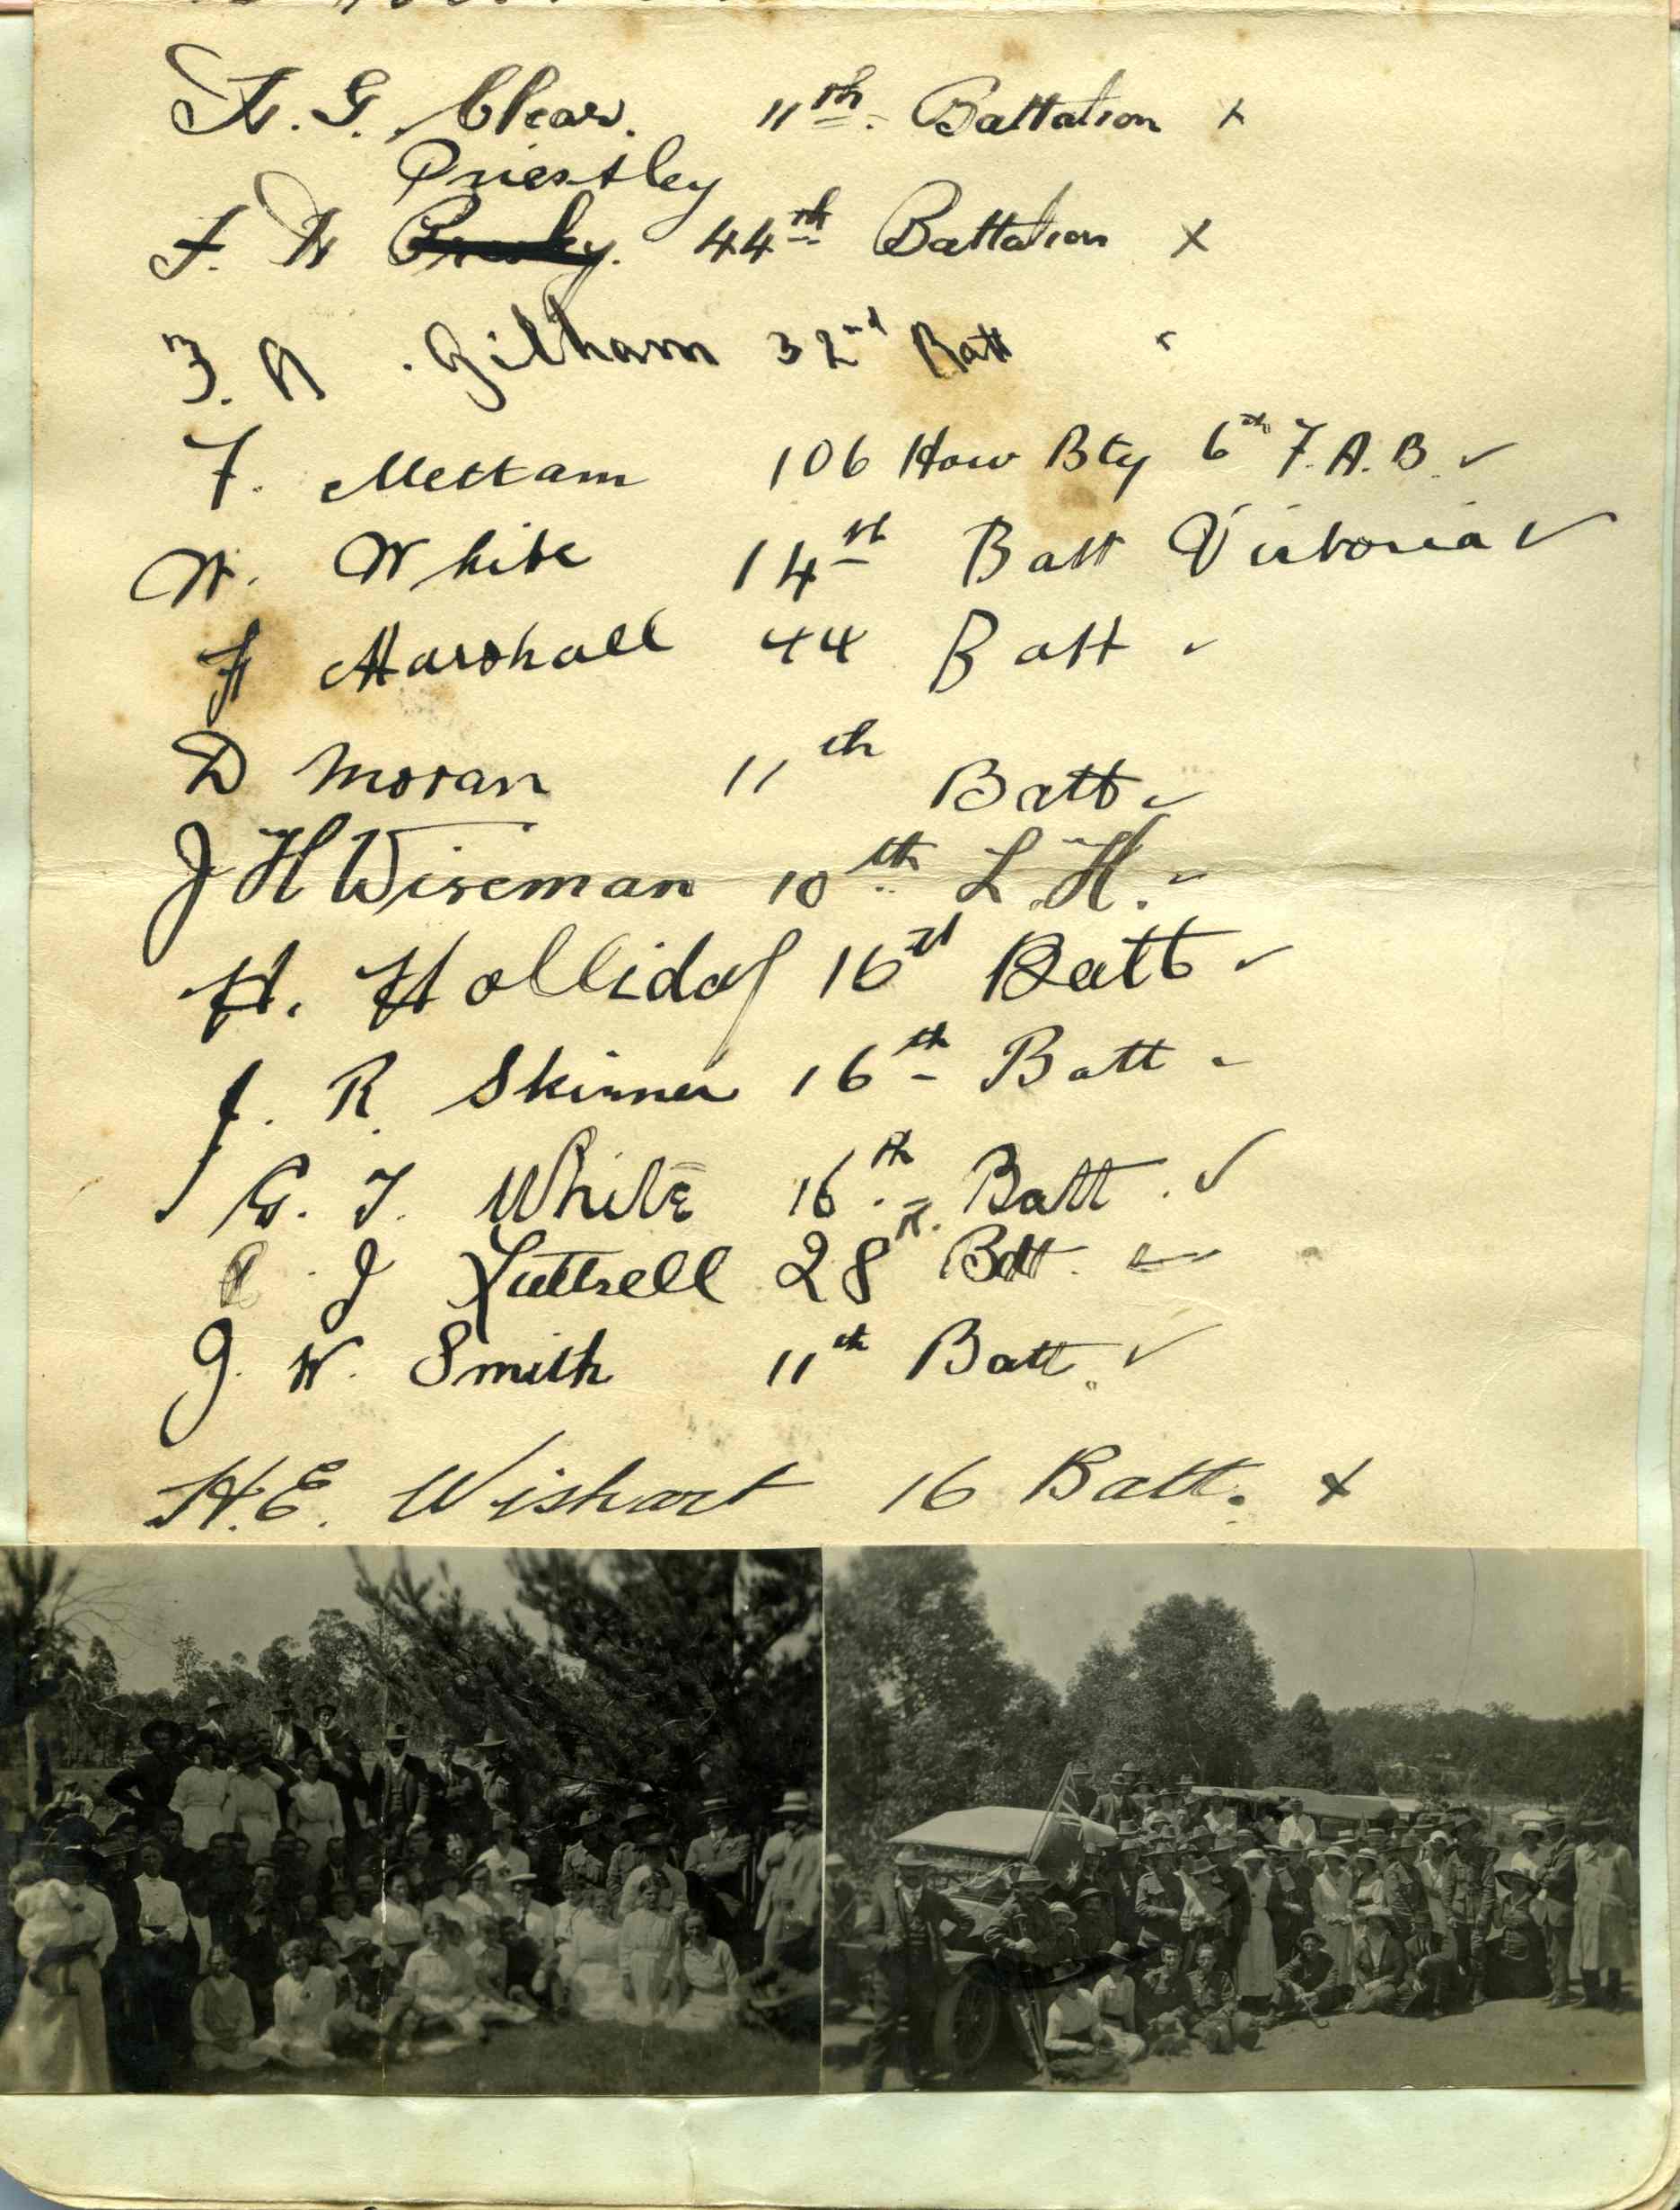 G. Clear. 11th. Battalion x
Priestley
F. W 44th Battalion x
F. A. Gilham 32nd Batt
F. Mettam 106 How Bty 6th F.A.B. ✓
W. White 14th Batt Victoria ✓
Marshall 44 Batt ✓
D Moran 11th Batt ✓
J H Wiseman 10th L.H. ✓
H. Holliday 16th Batt ✓
J. R. Skinner 16th Batt ✓
G. T. White 16th. Batt. ✓
J Luttrell 28th. Batt. ✓
J. W. Smith 11th Batt. ✓
H.E. Wishart 16 Batt. x